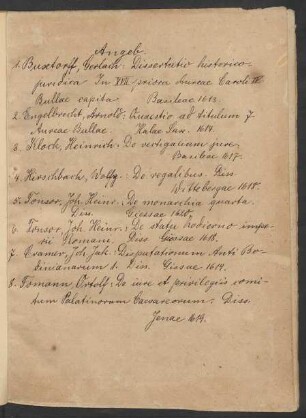 Angeb.
1. Buxtorff, Gerlach: Dissertatio historico-
juridica In XVII priora Aureae Caroli IV
Bullae capita Basileae 1613.
2. Engelbrecht, Arnold: Quaestio ad titulum 7.
Aureae Bullae. Halae Sax. 1614.
3. Kloch, Heinrich: De vectigalium jure
Basileae 1617.
4. Herschbach, Wolfg.: De regalibus. Diss
Wittebergae 1618.
5. Tonsor, Joh. Heinr.: De monarchia quarta.
Diss. Giessae 1618.
6. Tonsor, Joh. Heinr.: De statu hodierno impe-
rii Romani. Diss. Giessae 1618.
7. Cramer, Joh. Jak.: Disputationum Anti Bo-
dinianarum 1. Diss. Giessae 1619.
8. Tomann, Ortolf: De iure et privilegiis comi-
tum Palatinorum Caesareorum. Diss.
Jenae 1619.